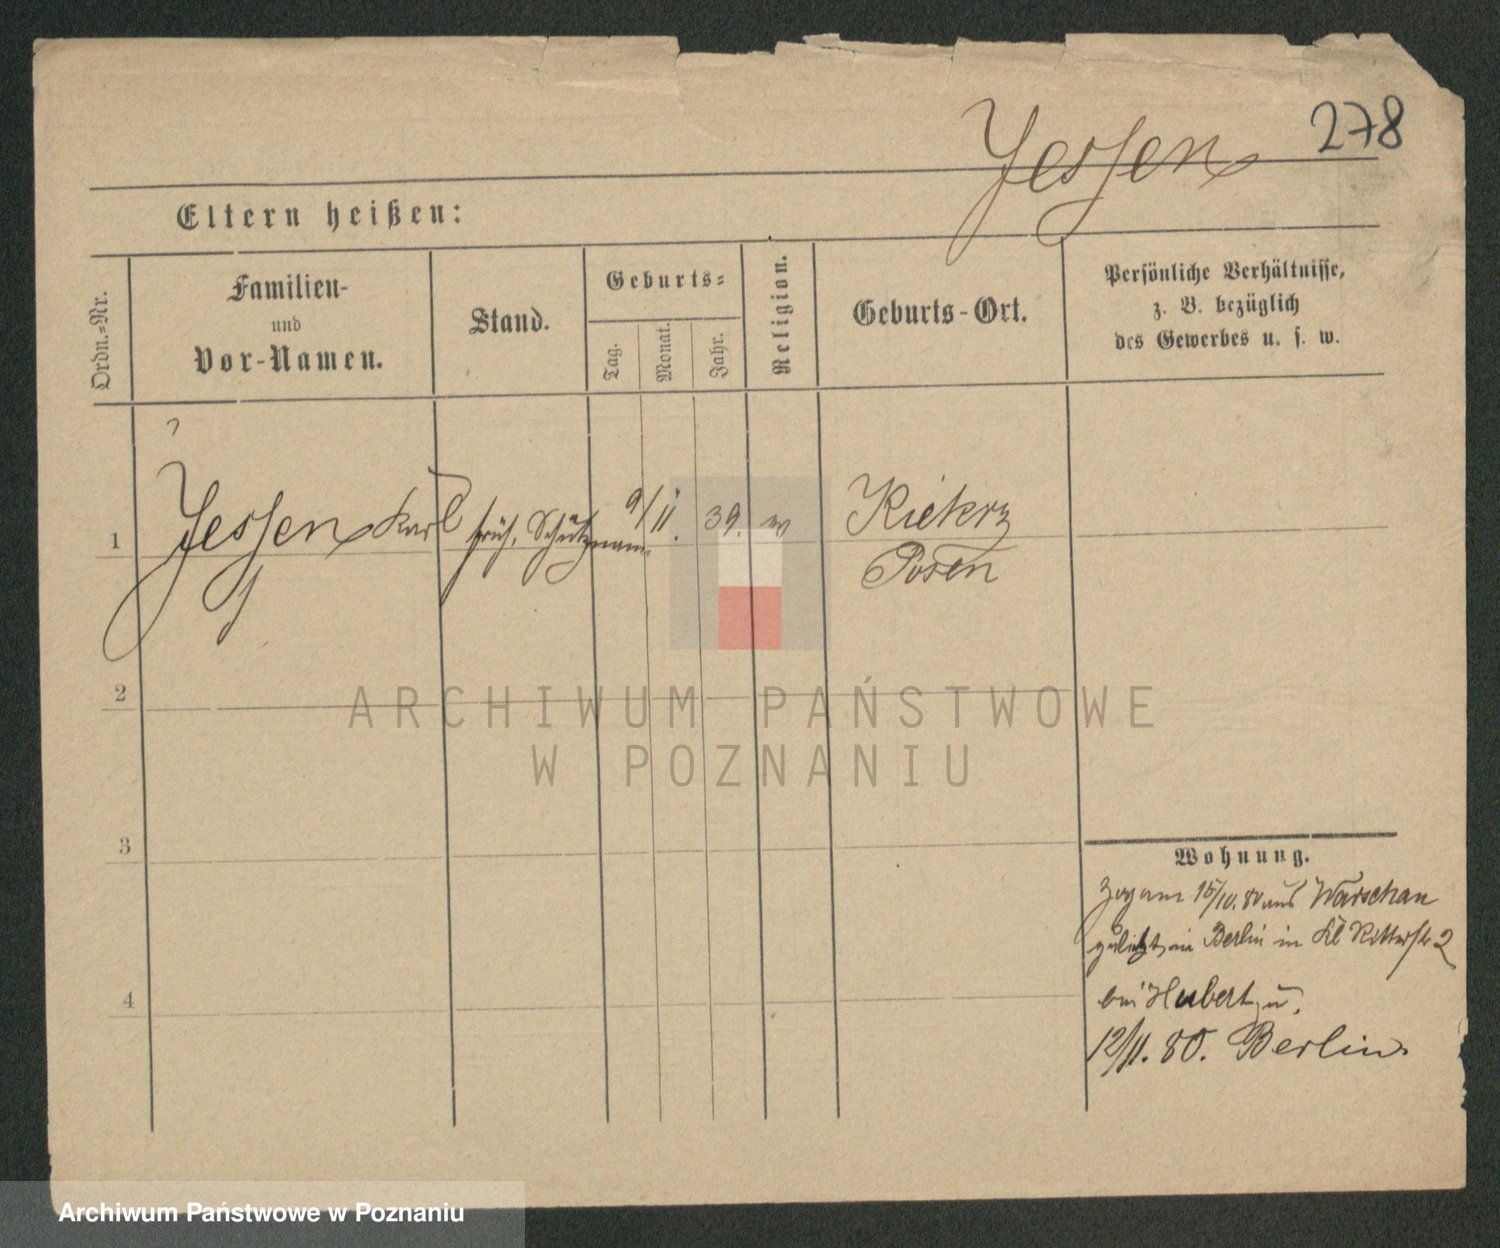 278
Jessen
Eltern heißen:
Ordn.=Nr.
Familien-
und
Vor-Namen.
Stand.
Geburts=
Tag.
Monat.
Jahr.
Religion.
Geburts-Ort.
Persönliche Verhältnisse,
z. B. bezüglich
des Gewerbes u. s. w.
?
1 Jessen Karl früh. Schutzmann 9/11. 39. Kiekrz
Posen
2
3
4
Wohnung.
Zog am 15/10. 80 aus Warschau
zuletzt in Berlin in Kl Ritterstr 2
bei Hubert,
12/11. 80. Berlin
ARCHIWUM PAŃSTWOWE
W POZNANIU
Archiwum Państwowe w Poznaniu